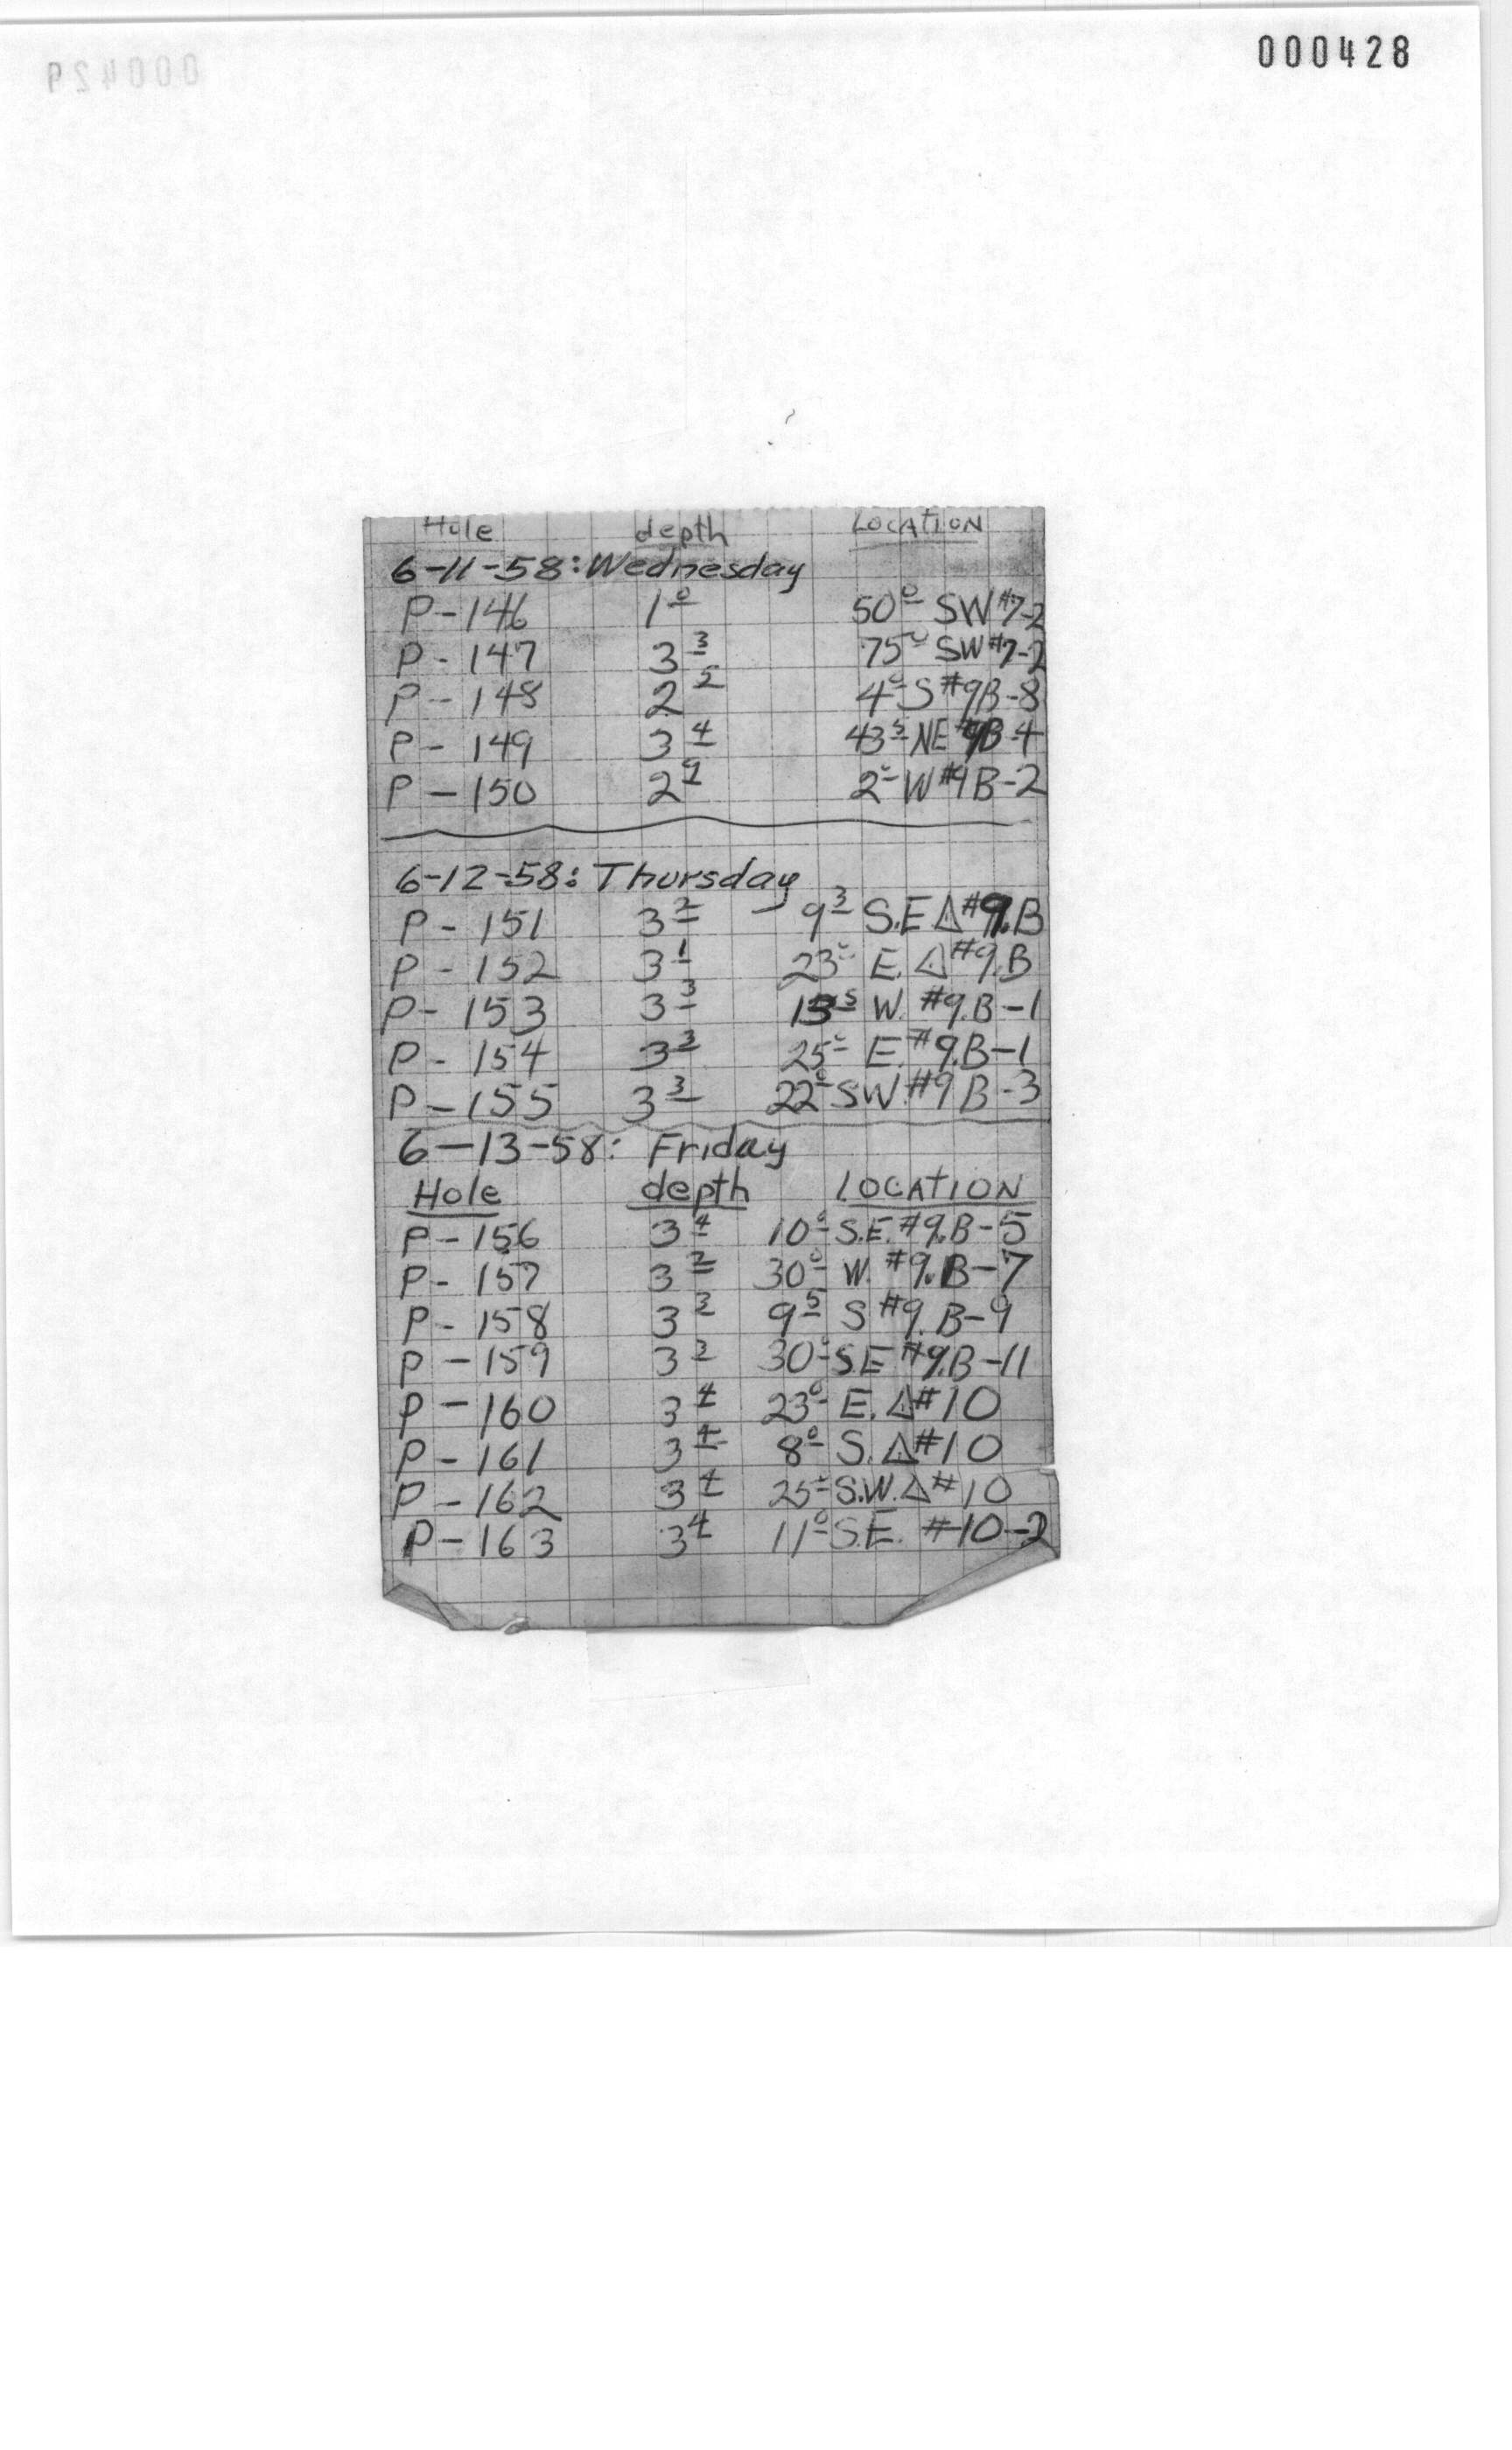 000428
Hole depth LOCATION
6-11-58: Wednesday
P-146 1⁰ 50⁰ SW #7-2
P-147 3³ 75⁰ SW #7-2
P-148 2⁵ 4⁰ S #9B-8
P-149 3⁴ 43⁵ NE #9B-4
P-150 2⁹ 2⁰ W #9B-2
6-12-58: Thursday
P-151 3² 9³ S.E △#9.B
P-152 3¹ 23⁰ E. △#9.B
P-153 3³ 13⁵ W. #9.B-1
P-154 3³ 25⁰ E. #9.B-1
P-155 3³ 22⁰ SW. #9B-3
6-13-58: Friday
Hole depth LOCATION
P-156 3⁴ 10⁰ S.E. #9.B-5
P-157 3² 30⁰ W. #9.B-7
P-158 3³ 9⁵ S #9.B-9
P-159 3³ 30⁰ S.E #9.B-11
P-160 3⁴ 23⁰ E. △#10
P-161 3⁴ 8⁰ S. △#10
P-162 3⁴ 25⁰ S.W. △#10
P-163 3⁴ 11⁰ S.E. #10-2